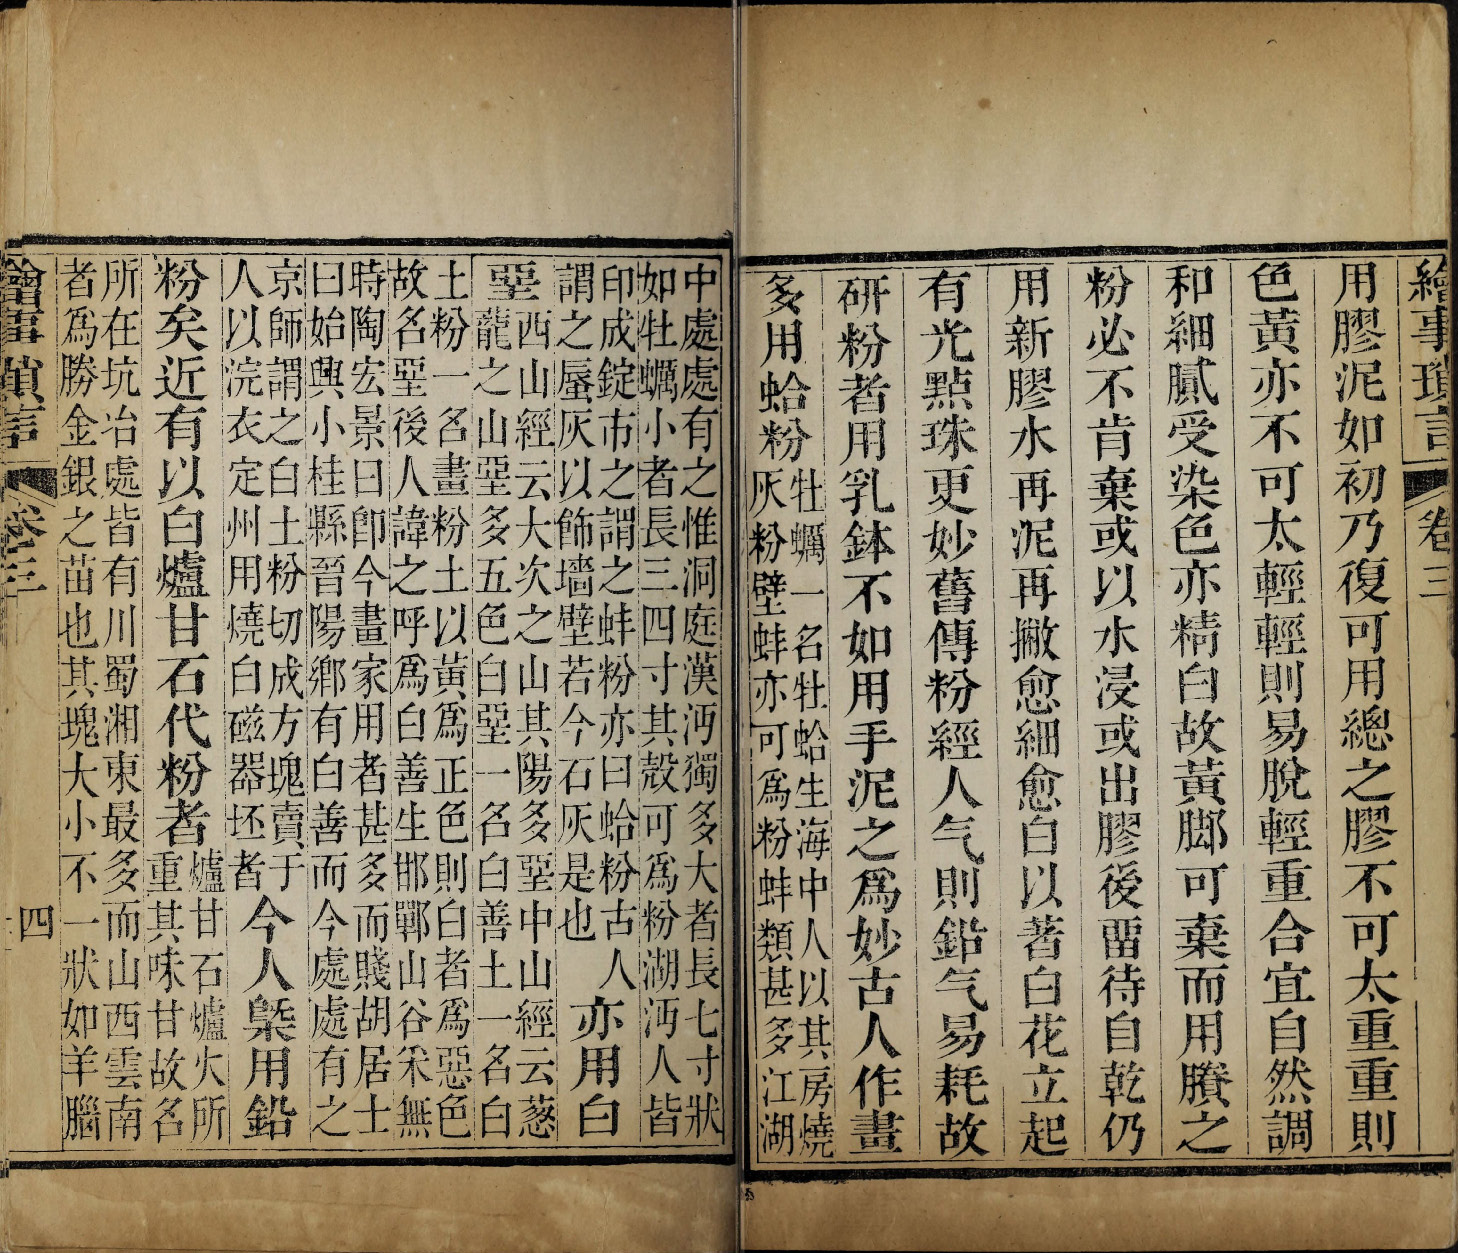 繪事瑣言 卷三
用膠泥如初乃復可用總之膠不可太重重則
色黃亦不可太輕輕則易脫輕重合宜自然調
和細膩受染色亦精白故黃脚可棄而用賸之
粉必不肯棄或以水浸或出膠後畱待自乾仍
用新膠水再泥再擻愈細愈白以著白花立起
有光點珠更妙舊傳粉經人气則鉛气易耗故
研粉者用乳鉢不如用手泥之爲妙古人作畫
多用蛤粉
牡蠣一名牡蛤生海中人以其房燒
灰粉壁蚌亦可爲粉蚌類甚多江湖
中處處有之惟洞庭漢沔獨多大者長七寸狀
如牡蠣小者長三四寸其殼可爲粉湖沔人皆
印成錠市之謂之蚌粉亦曰蛤粉古人
謂之蜃灰以飾墻壁若今石灰是也
亦用白
堊
西山經云大次之山其陽多堊中山經云葱
龍之山堊多五色白堊一名白善土一名白
土粉一名畫粉土以黃爲正色則白者爲惡色
故名堊後人諱之呼爲白善生邯鄲山谷采無
時陶宏景曰卽今畫家用者甚多而賤胡居士
曰始興小桂縣晉陽鄉有白善而今處處有之
京師謂之白土粉切成方塊賣于
人以浣衣定州用燒白磁器坯者
今人槩用鉛
粉矣近有以白爐甘石代粉者
爐甘石爐火所
重其味甘故名
所在坑冶處皆有川蜀湘東最多而山西雲南
者爲勝金銀之苗也其塊大小不一狀如羊腦
繪事瑣言 卷三 四